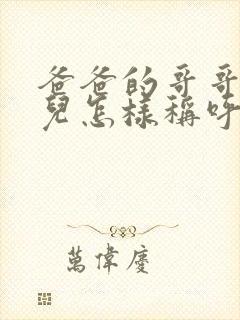 爸爸的哥哥
兒怎樣稱呼
萬偉慶